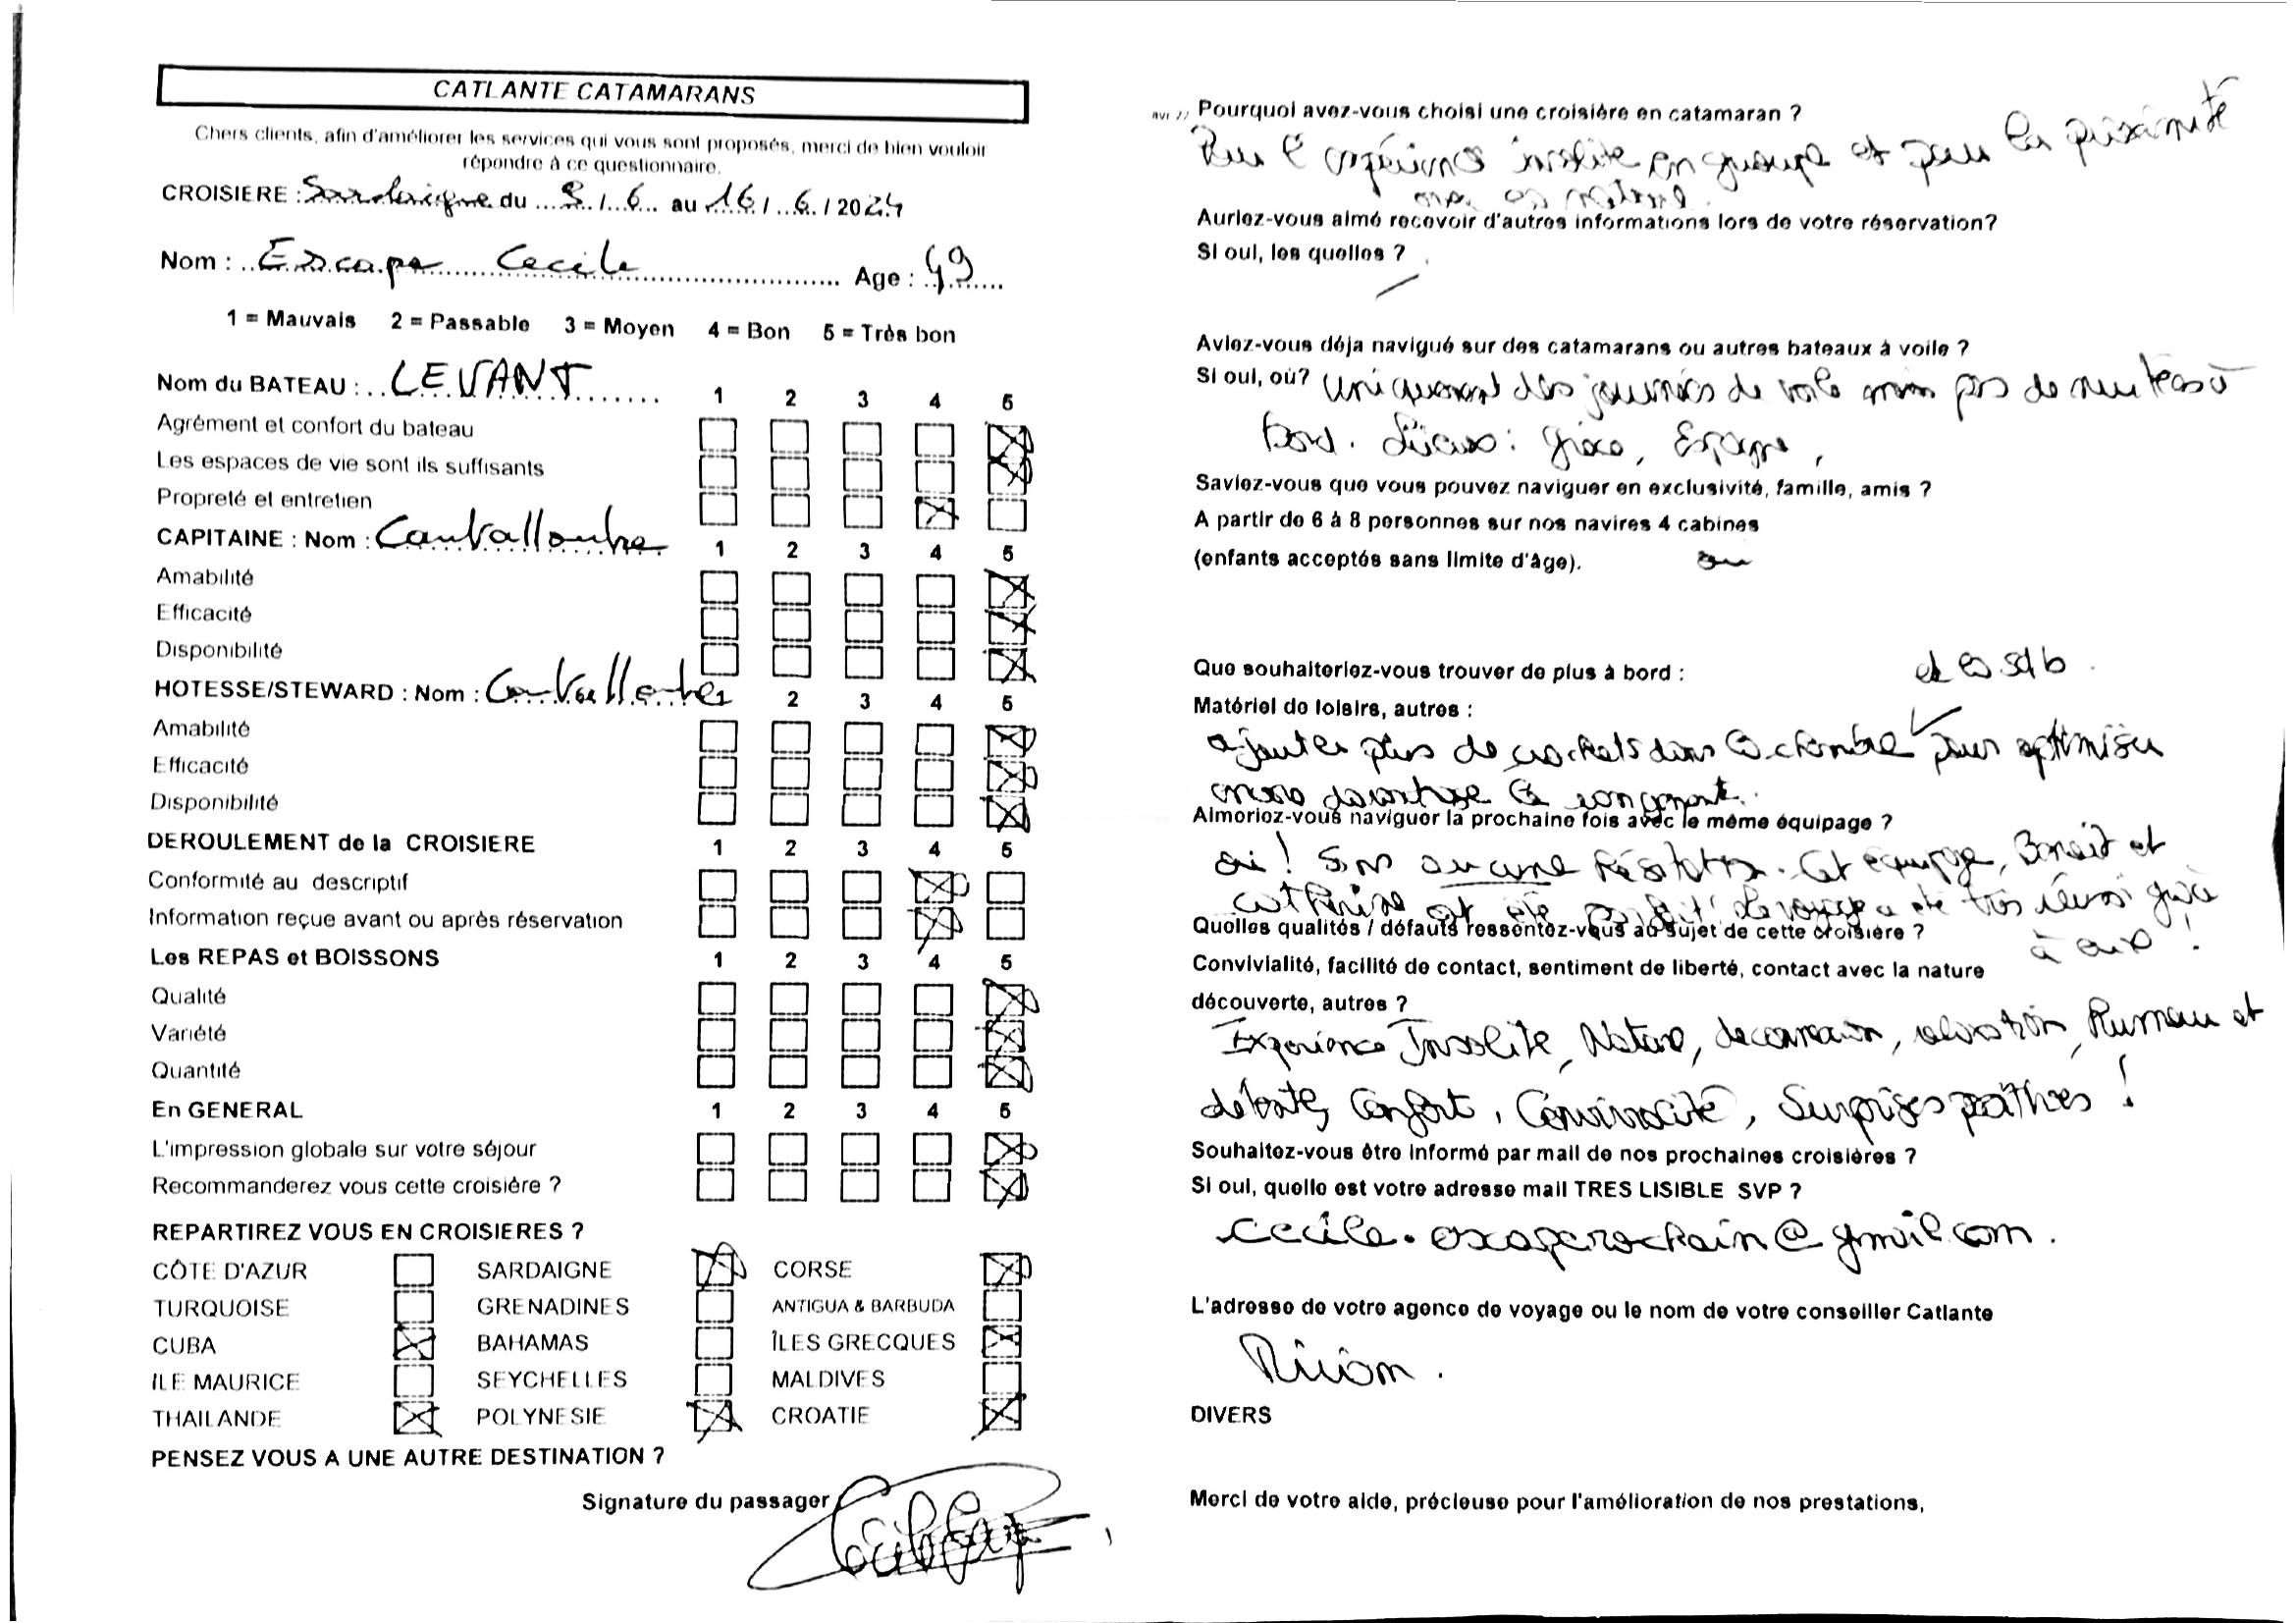 CATLANTE CATAMARANS
Chers clients, afin d'améliorer les services qui vous sont proposés, merci de bien vouloir
répondre à ce questionnaire.
CROISIERE : Sardaigne du 9 / 6 au 16 / 6 / 2024
Nom : Escape Cecile Age : 49
1 = Mauvais 2 = Passable 3 = Moyen 4 = Bon 5 = Très bon
Nom du BATEAU : LEVANT 1 2 3 4 5
Agrément et confort du bateau
Les espaces de vie sont ils suffisants
Propreté et entretien
CAPITAINE : Nom : 1 2 3 4 5
Amabilité
Efficacité
Disponibilité
HOTESSE/STEWARD : Nom : 2 3 4 5
Amabilité
Efficacité
Disponibilité
DEROULEMENT de la CROISIERE 1 2 3 4 5
Conformité au descriptif
Information reçue avant ou après réservation
Les REPAS et BOISSONS 1 2 3 4 5
Qualité
Variété
Quantité
En GENERAL 1 2 3 4 5
L'impression globale sur votre séjour
Recommanderez vous cette croisière ?
REPARTIREZ VOUS EN CROISIERES ?
CÔTE D'AZUR SARDAIGNE CORSE
TURQUOISE GRENADINES ANTIGUA & BARBUDA
CUBA BAHAMAS ÎLES GRECQUES
ILE MAURICE SEYCHELLES MALDIVES
THAILANDE POLYNESIE CROATIE
PENSEZ VOUS A UNE AUTRE DESTINATION ?
Signature du passager
Pourquoi avez-vous choisi une croisière en catamaran ?
Pour l'expérience insolite en groupe et pour la proximité
Auriez-vous aimé recevoir d'autres informations lors de votre réservation?
Si oui, les quelles ?
Aviez-vous déja navigué sur des catamarans ou autres bateaux à voile ?
Si oui, où? Uniquement des journées de voile mais pas de nuitées à
bord. Lieux : Grèce, Espagne,
Saviez-vous que vous pouvez naviguer en exclusivité, famille, amis ?
A partir de 6 à 8 personnes sur nos navires 4 cabines
(enfants acceptés sans limite d'âge). oui
Que souhaiteriez-vous trouver de plus à bord : et sdb.
Matériel de loisirs, autres :
ajouter plus de crochets dans la chambre pour optimiser
encore davantage le rangement.
Aimeriez-vous naviguer la prochaine fois avec le même équipage ?
oui ! Sans aucune hésitation. Cet équipage, Benoit et
Catherine ont été parfait ! Le voyage a été très réussi grâce
à eux !
Quelles qualités / défauts ressentez-vous au sujet de cette croisière ?
Convivialité, facilité de contact, sentiment de liberté, contact avec la nature
découverte, autres ?
Expérience Insolite, Nature, deconnexion, relaxation, Humour et
débats, Confort, Convivialité, Surprises positives !
Souhaitez-vous être informé par mail de nos prochaines croisières ?
Si oui, quelle est votre adresse mail TRES LISIBLE SVP ?
cecile.escaperochain@gmail.com.
L'adresse de votre agence de voyage ou le nom de votre conseiller Catlante
DIVERS
Merci de votre aide, précieuse pour l'amélioration de nos prestations,